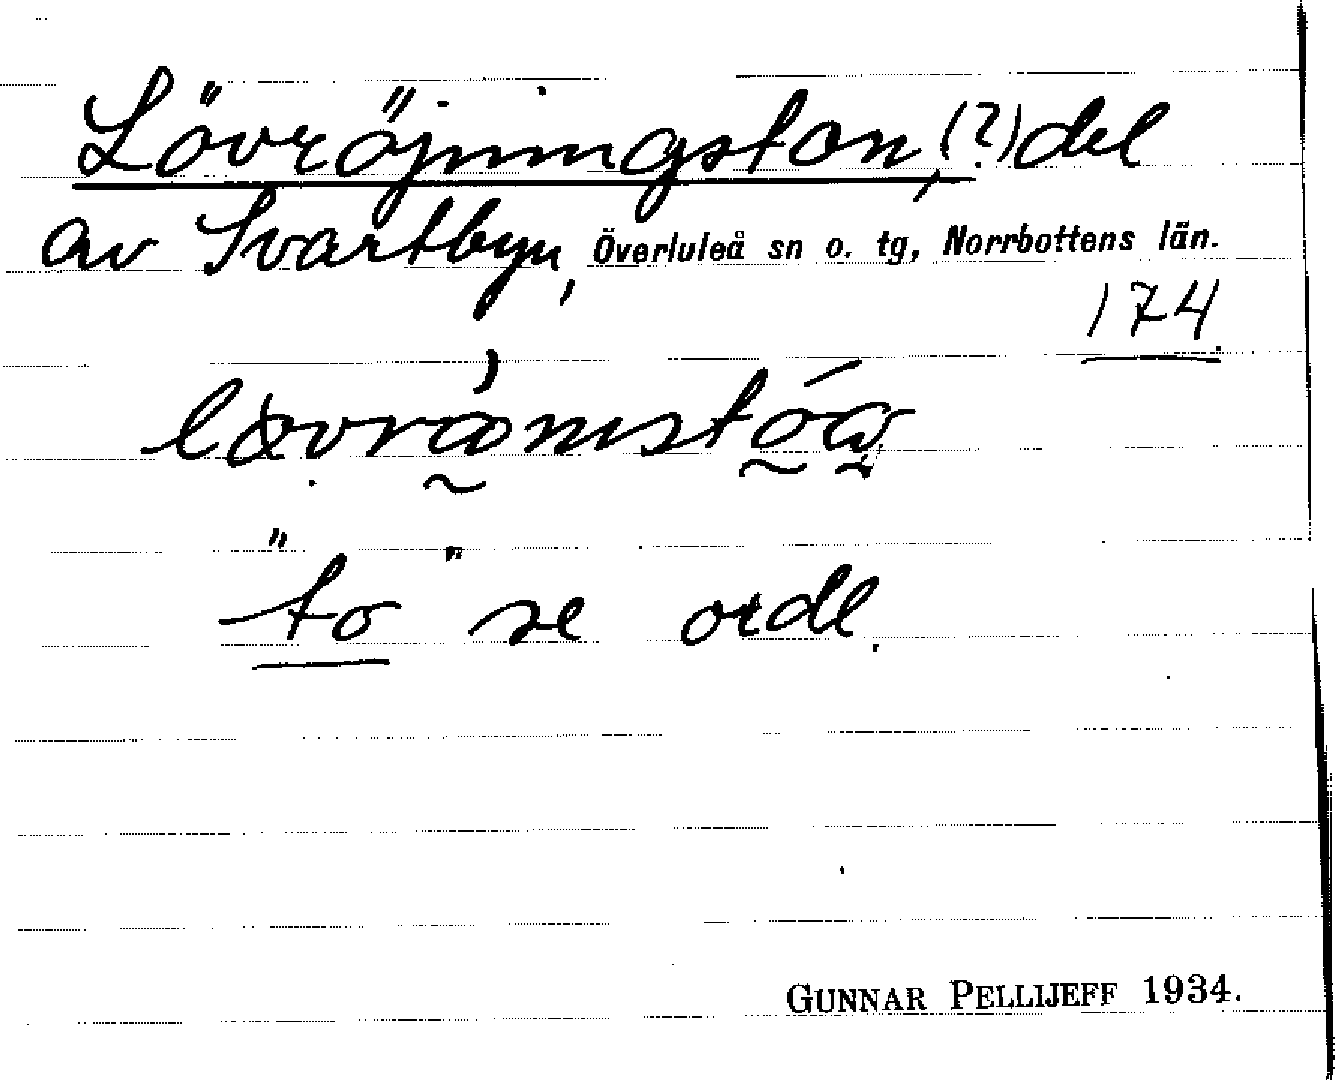 Lövröjningston, (?) del
av Svartbyn, Överluleå sn o. tg, Norrbottens län.
174.
"to" se ordl.
GUNNAR PELLIJEFF 1934.